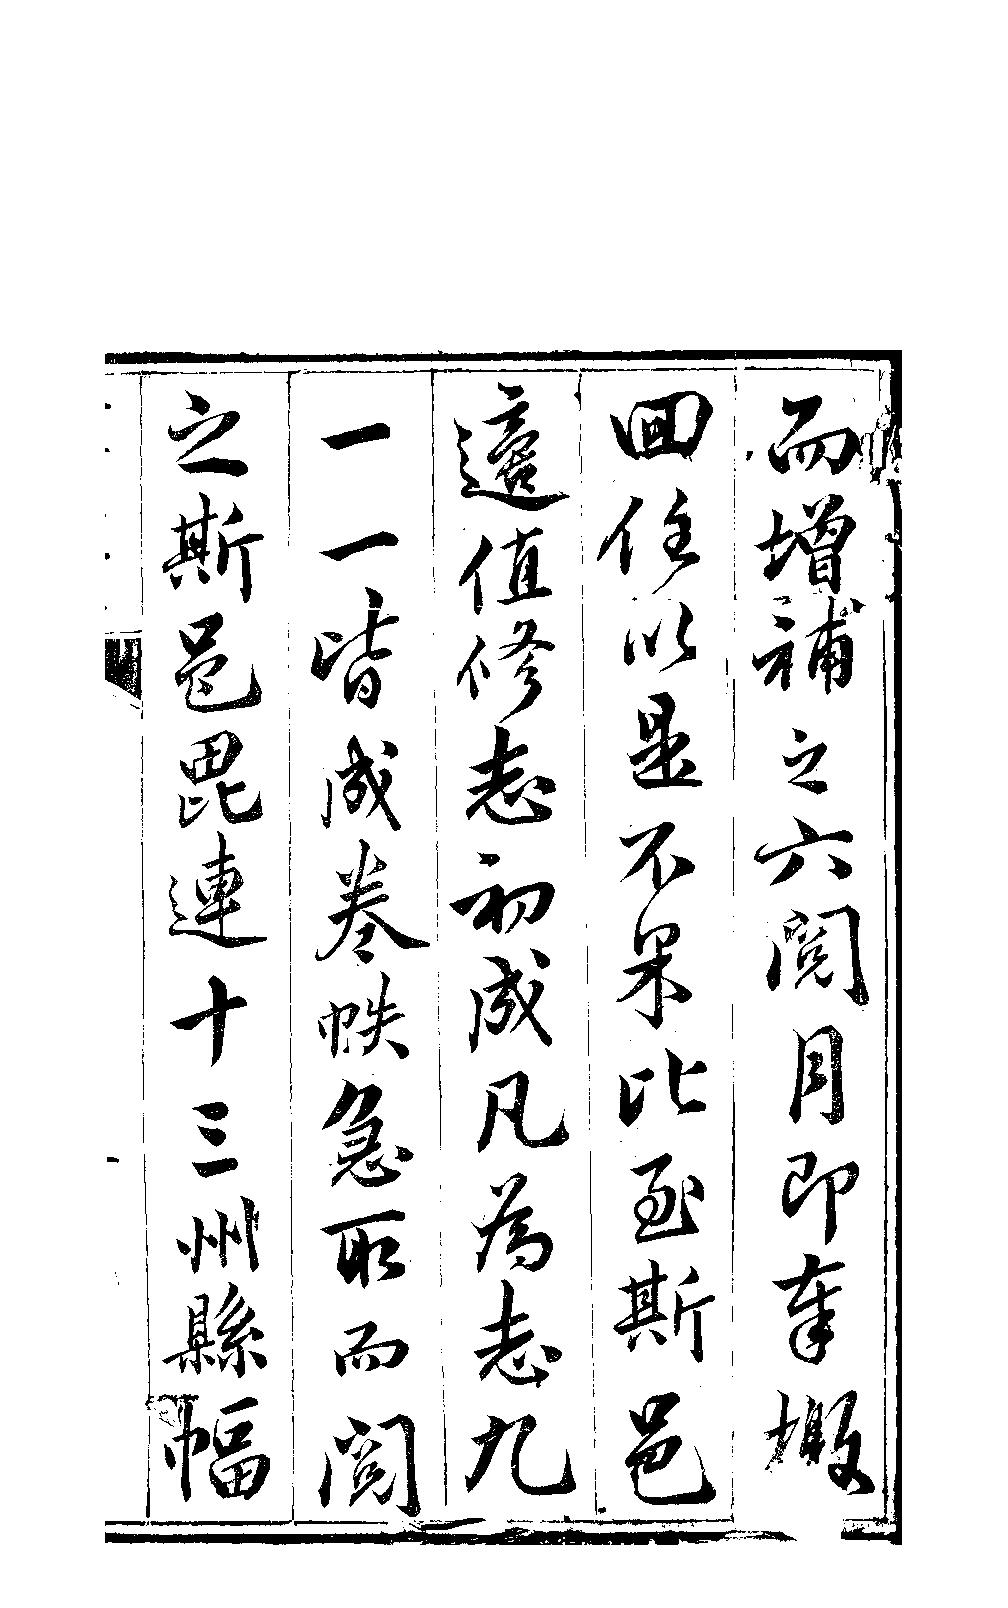 而增補之六閱月即奉檄
回任以是不果比至斯邑
適值修志初成凡為志九
一一皆成卷帙急取而閱
之斯邑毘連十三州縣幅